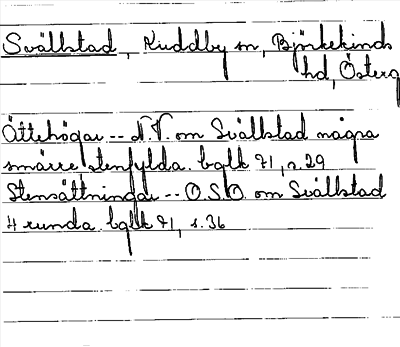 Svällstad, Kuddby sn, Björkekinds
hd, Österg
Ättehögar -- N.V. om Svällstad några
smärre stenfyllda. bglk 71, s. 29
Stensättningar -- O.S.O. om Svällstad
4 runda. bglk 71, s. 36